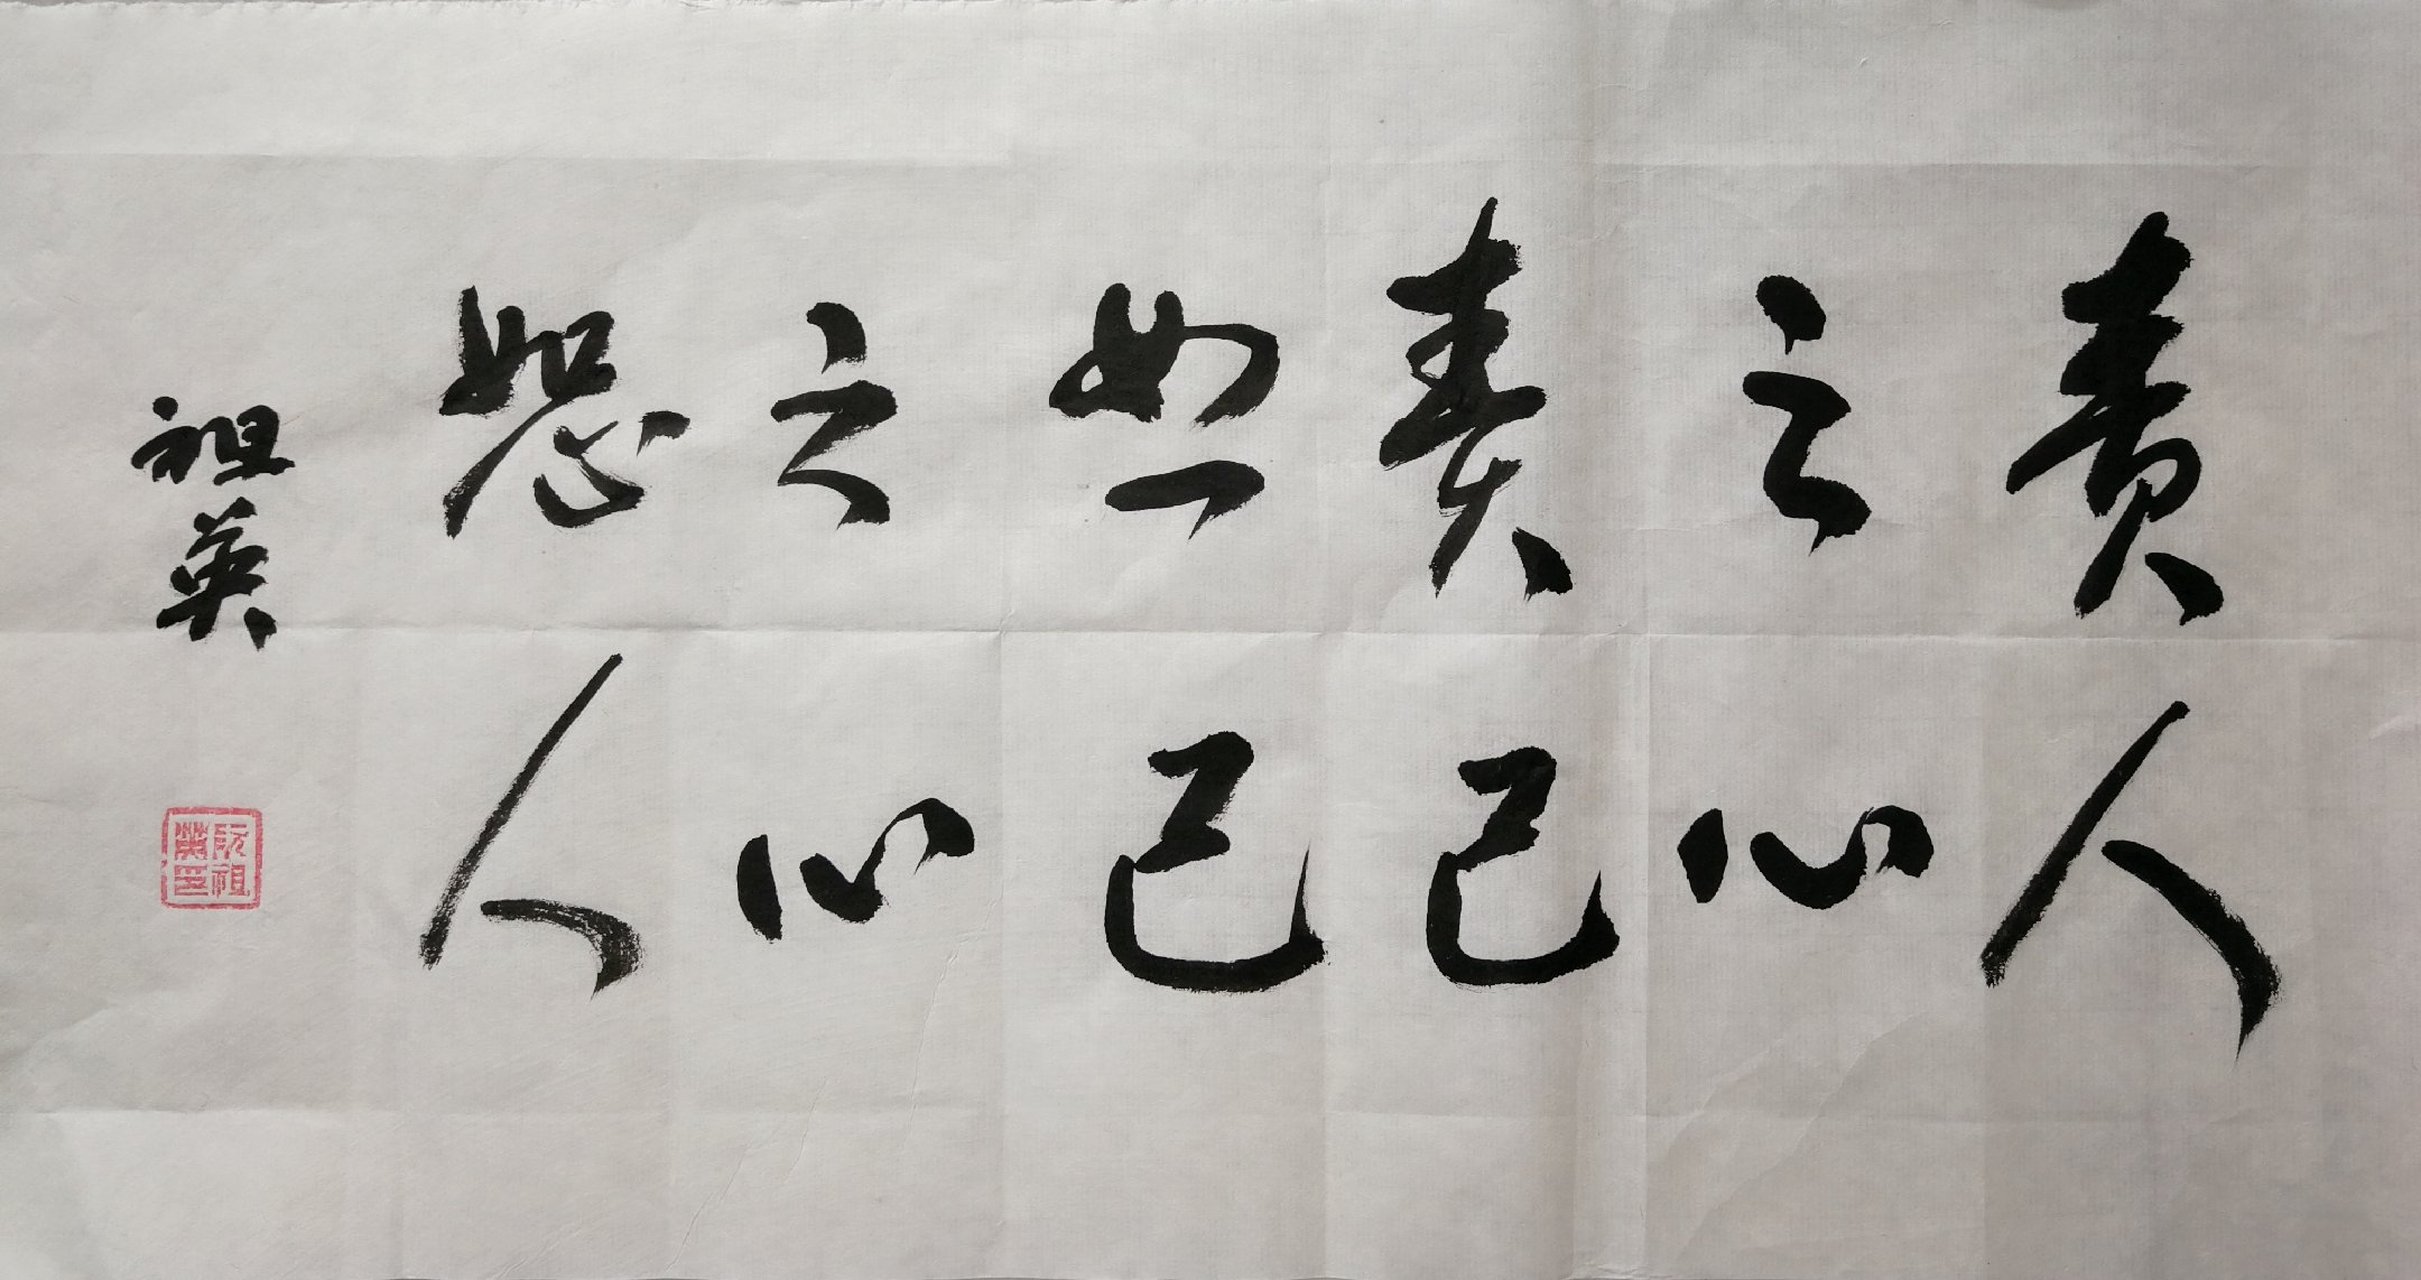 责人
之心
责己
恕己
之心
恕人
祖英
阮祖
英印